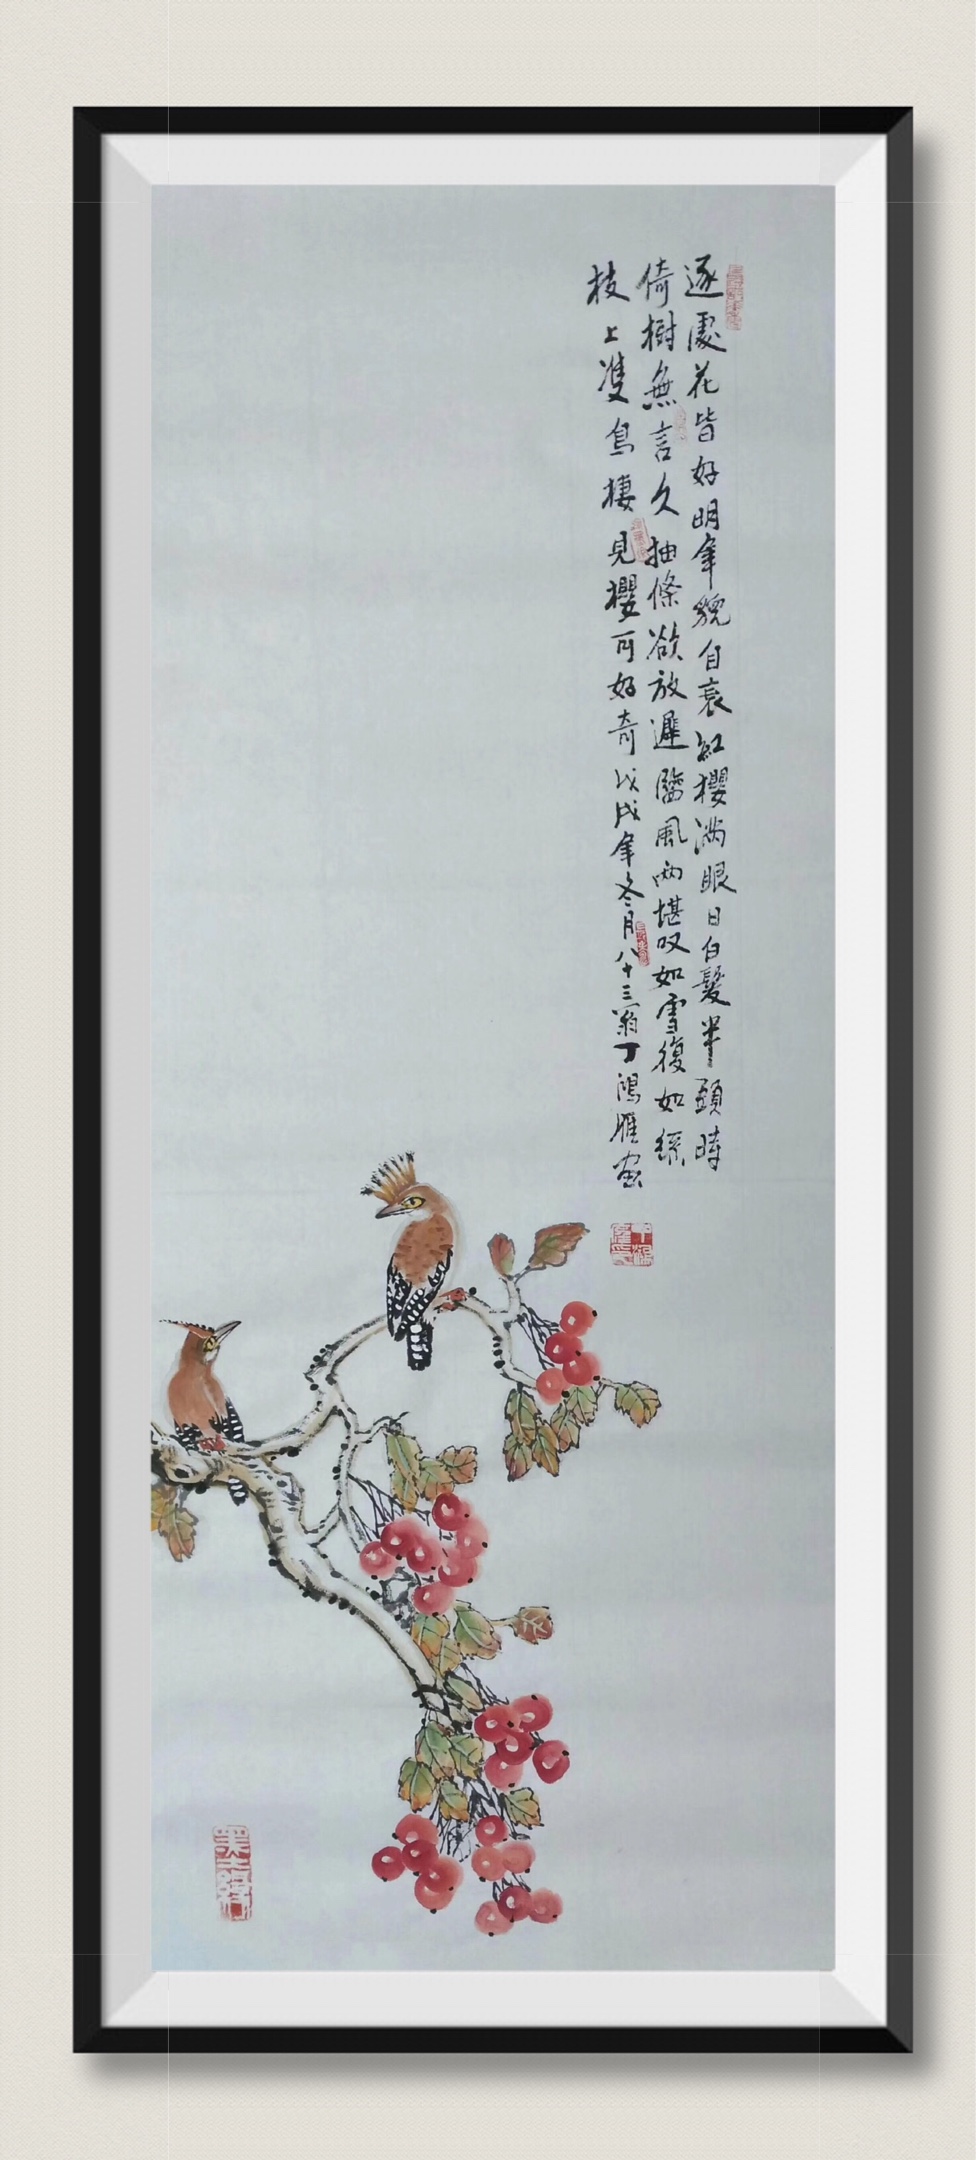 逐處花皆好明年貌自衰紅櫻滿眼日白髮半頭時
倚樹無言久抽條欲放遲臨風兩堪叹如雪復如絲
枝上雙鳥棲見櫻可好奇戊戌年冬月八十三翁丁鴻雁畫
丁鴻雁印